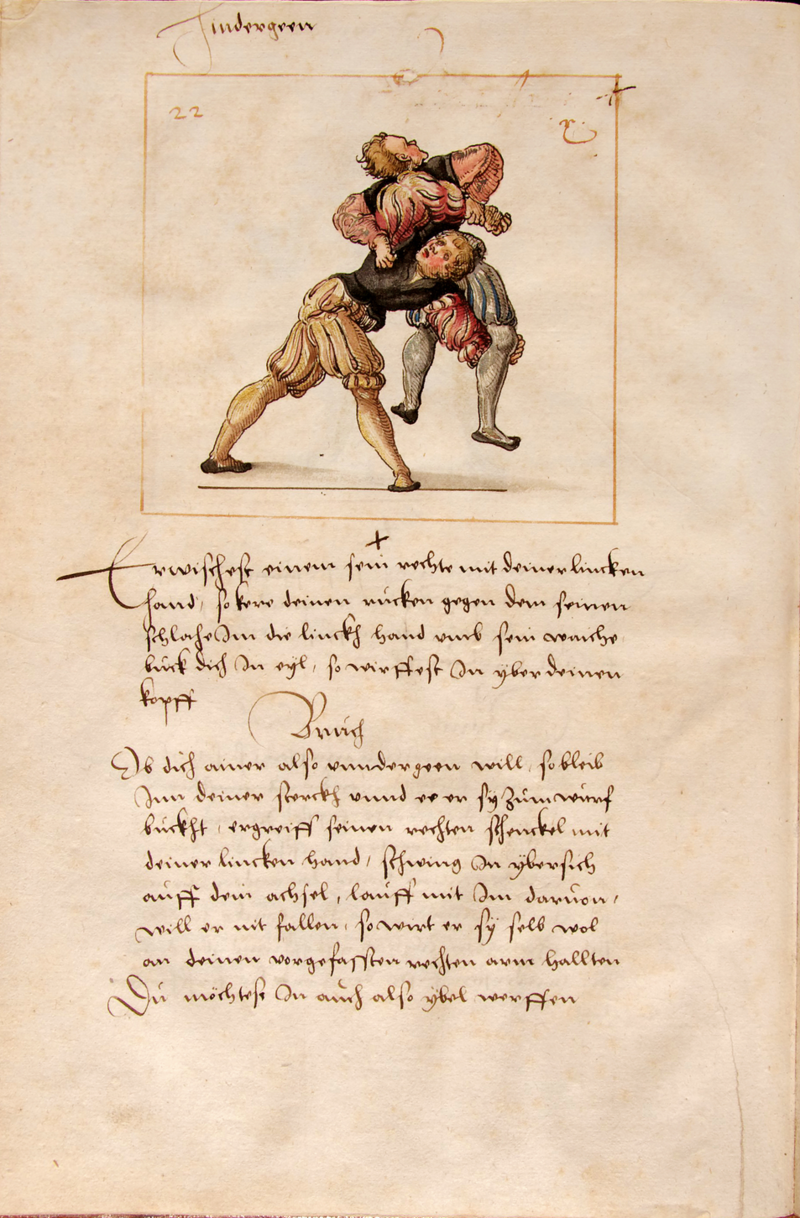 Hindergeen
22
Erwischest einem sein rechte mit deiner lincken
hand, so kere deinen rucken gegen dem seinen
schlahe Im die linckh hand umb sein waiche
buck dich In eyl, so wirffest In yber deinen
kopff
Bruch
Ob dich ainer also vnndergeen will, so bleib
Inn deiner sterckh vnnd ee er sy zum wurf
buckht, ergreiff seinen rechten schenckel mit
deiner lincken hand, schwing In ybersich
auff dein achsel, lauff mit Im daruon,
will er nit fallen, so wirt er sy selb wol
an deinen vorgefassten rechten arm hallten
Du möchtest In auch also ybel werffen